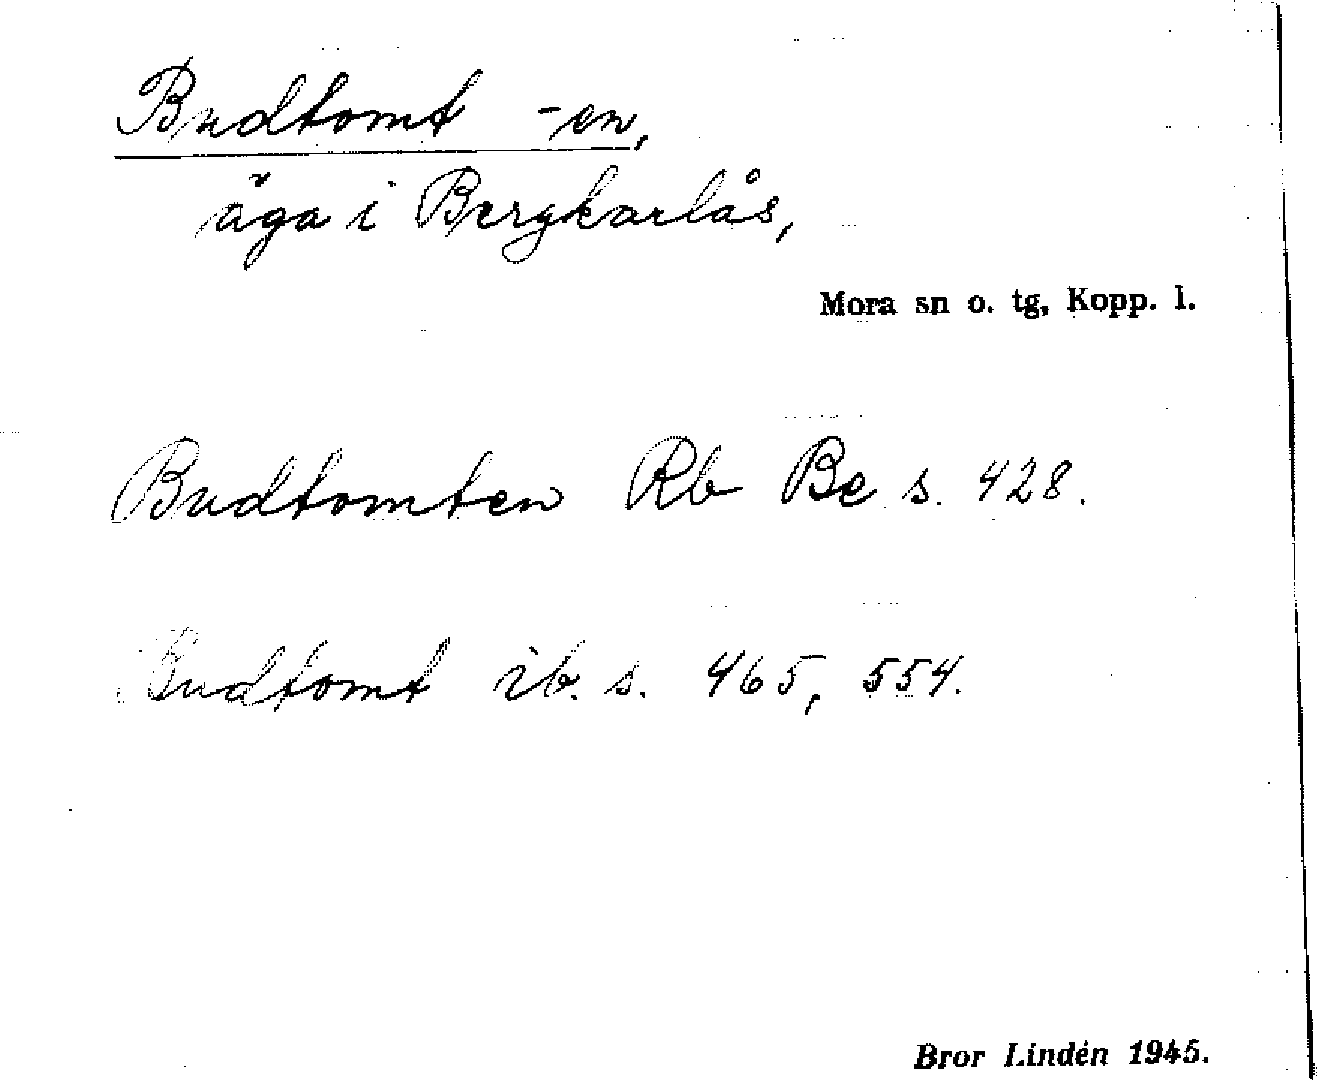 Budtomt -en,
äga i Bergkarlås,
Mora sn o. tg, Kopp. l.
Budtomten Rb Be s. 428.
Budtomt ib. s. 465, 554.
Bror Lindén 1945.